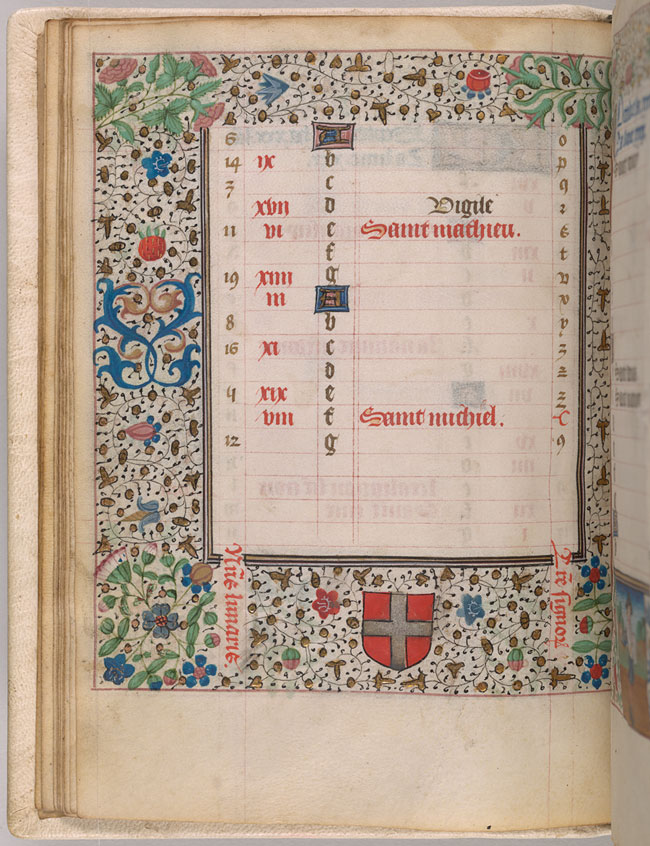 6 A o
14 ix b p
3 c q
xvii d Vigile r
11 vi e Saint mathieu. s
f t
19 xiiii g v
iii A x
8 b y
16 xi c z
d z
4 xix e z
viii f Saint michiel.
12 g 9
Nre lunaris
Lre signor